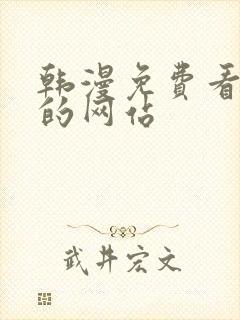 韩漫免费看
的网站
武井宏文